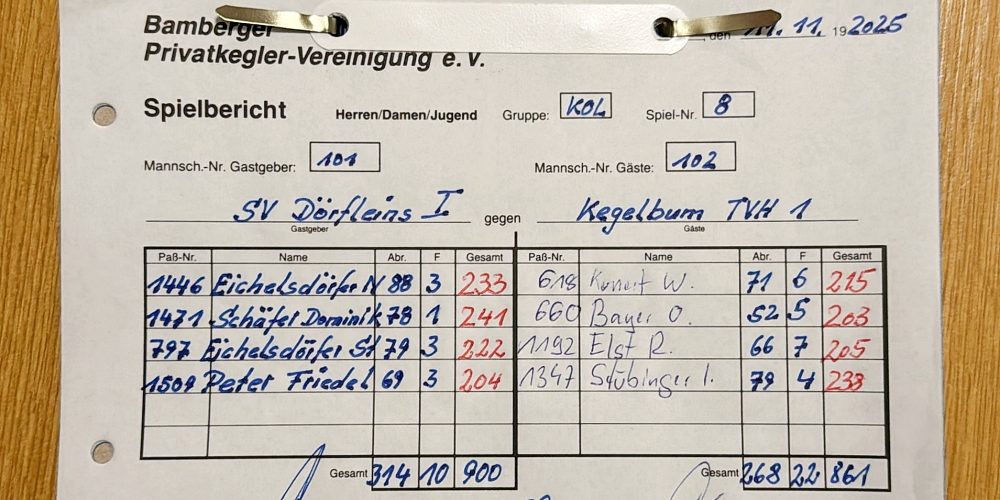 Bamberger den 11.11. 192025
Privatkegler-Vereinigung e.V.
Spielbericht Herren/Damen/Jugend Gruppe: KOL Spiel-Nr. 8
Mannsch.-Nr. Gastgeber: 101 Mannsch.-Nr. Gäste: 102
SV Dörfleins I gegen Kegelbum TVH 1
Gastgeber Gäste
Paß-Nr. Name Abr. F Gesamt Paß-Nr. Name Abr. F Gesamt
1446 Eichelsdörfer N 88 3 233 618 Kunert W. 71 6 215
1471 Schäfer Dominik 78 1 241 660 Bayer O. 52 5 203
797 Eichelsdörfer St 79 3 222 1192 Elst R. 66 7 205
1509 Peter Friedel 69 3 204 1347 Stübinger I. 79 4 238
Gesamt 314 10 900 Gesamt 268 22 861